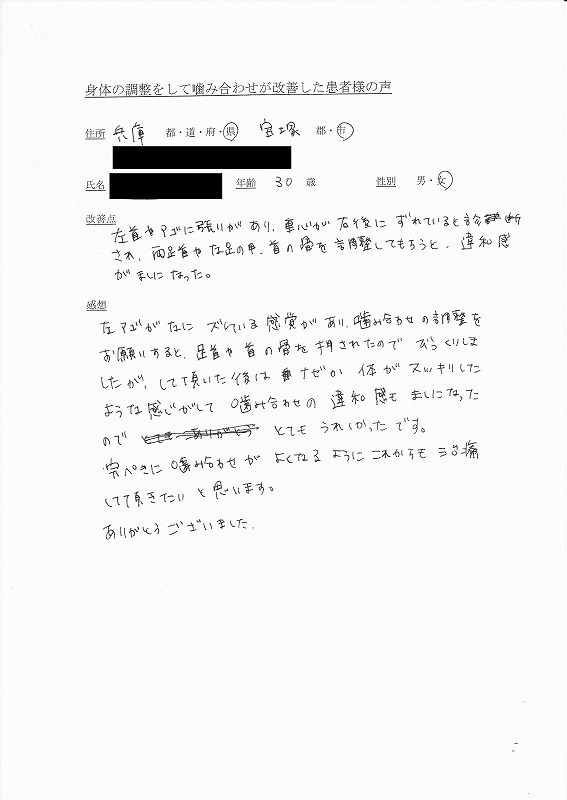 身体の調整をして噛み合わせが改善した患者様の声
住所 兵庫 都・道・府・県 宝塚 郡・市
氏名 年齢 30 歳 性別 男・女
改善点
左首やアゴに張りがあり、重心が右後にずれていると診断
され、両足首や左足の甲、首の骨を調整してもらうと、違和感
がましになった。
感想
左アゴが左にズレている感覚があり、噛み合わせの調整を
お願いすると、足首や首の骨を押されたのでびっくりしま
したが、して頂いた後はナゼか体がスッキリした
ような感じがして噛み合わせの違和感もましになった
ので とてもうれしかったです。
完ぺきに噛み合わせがよくなるようにこれからも治療
して頂きたいと思います。
ありがとうございました.